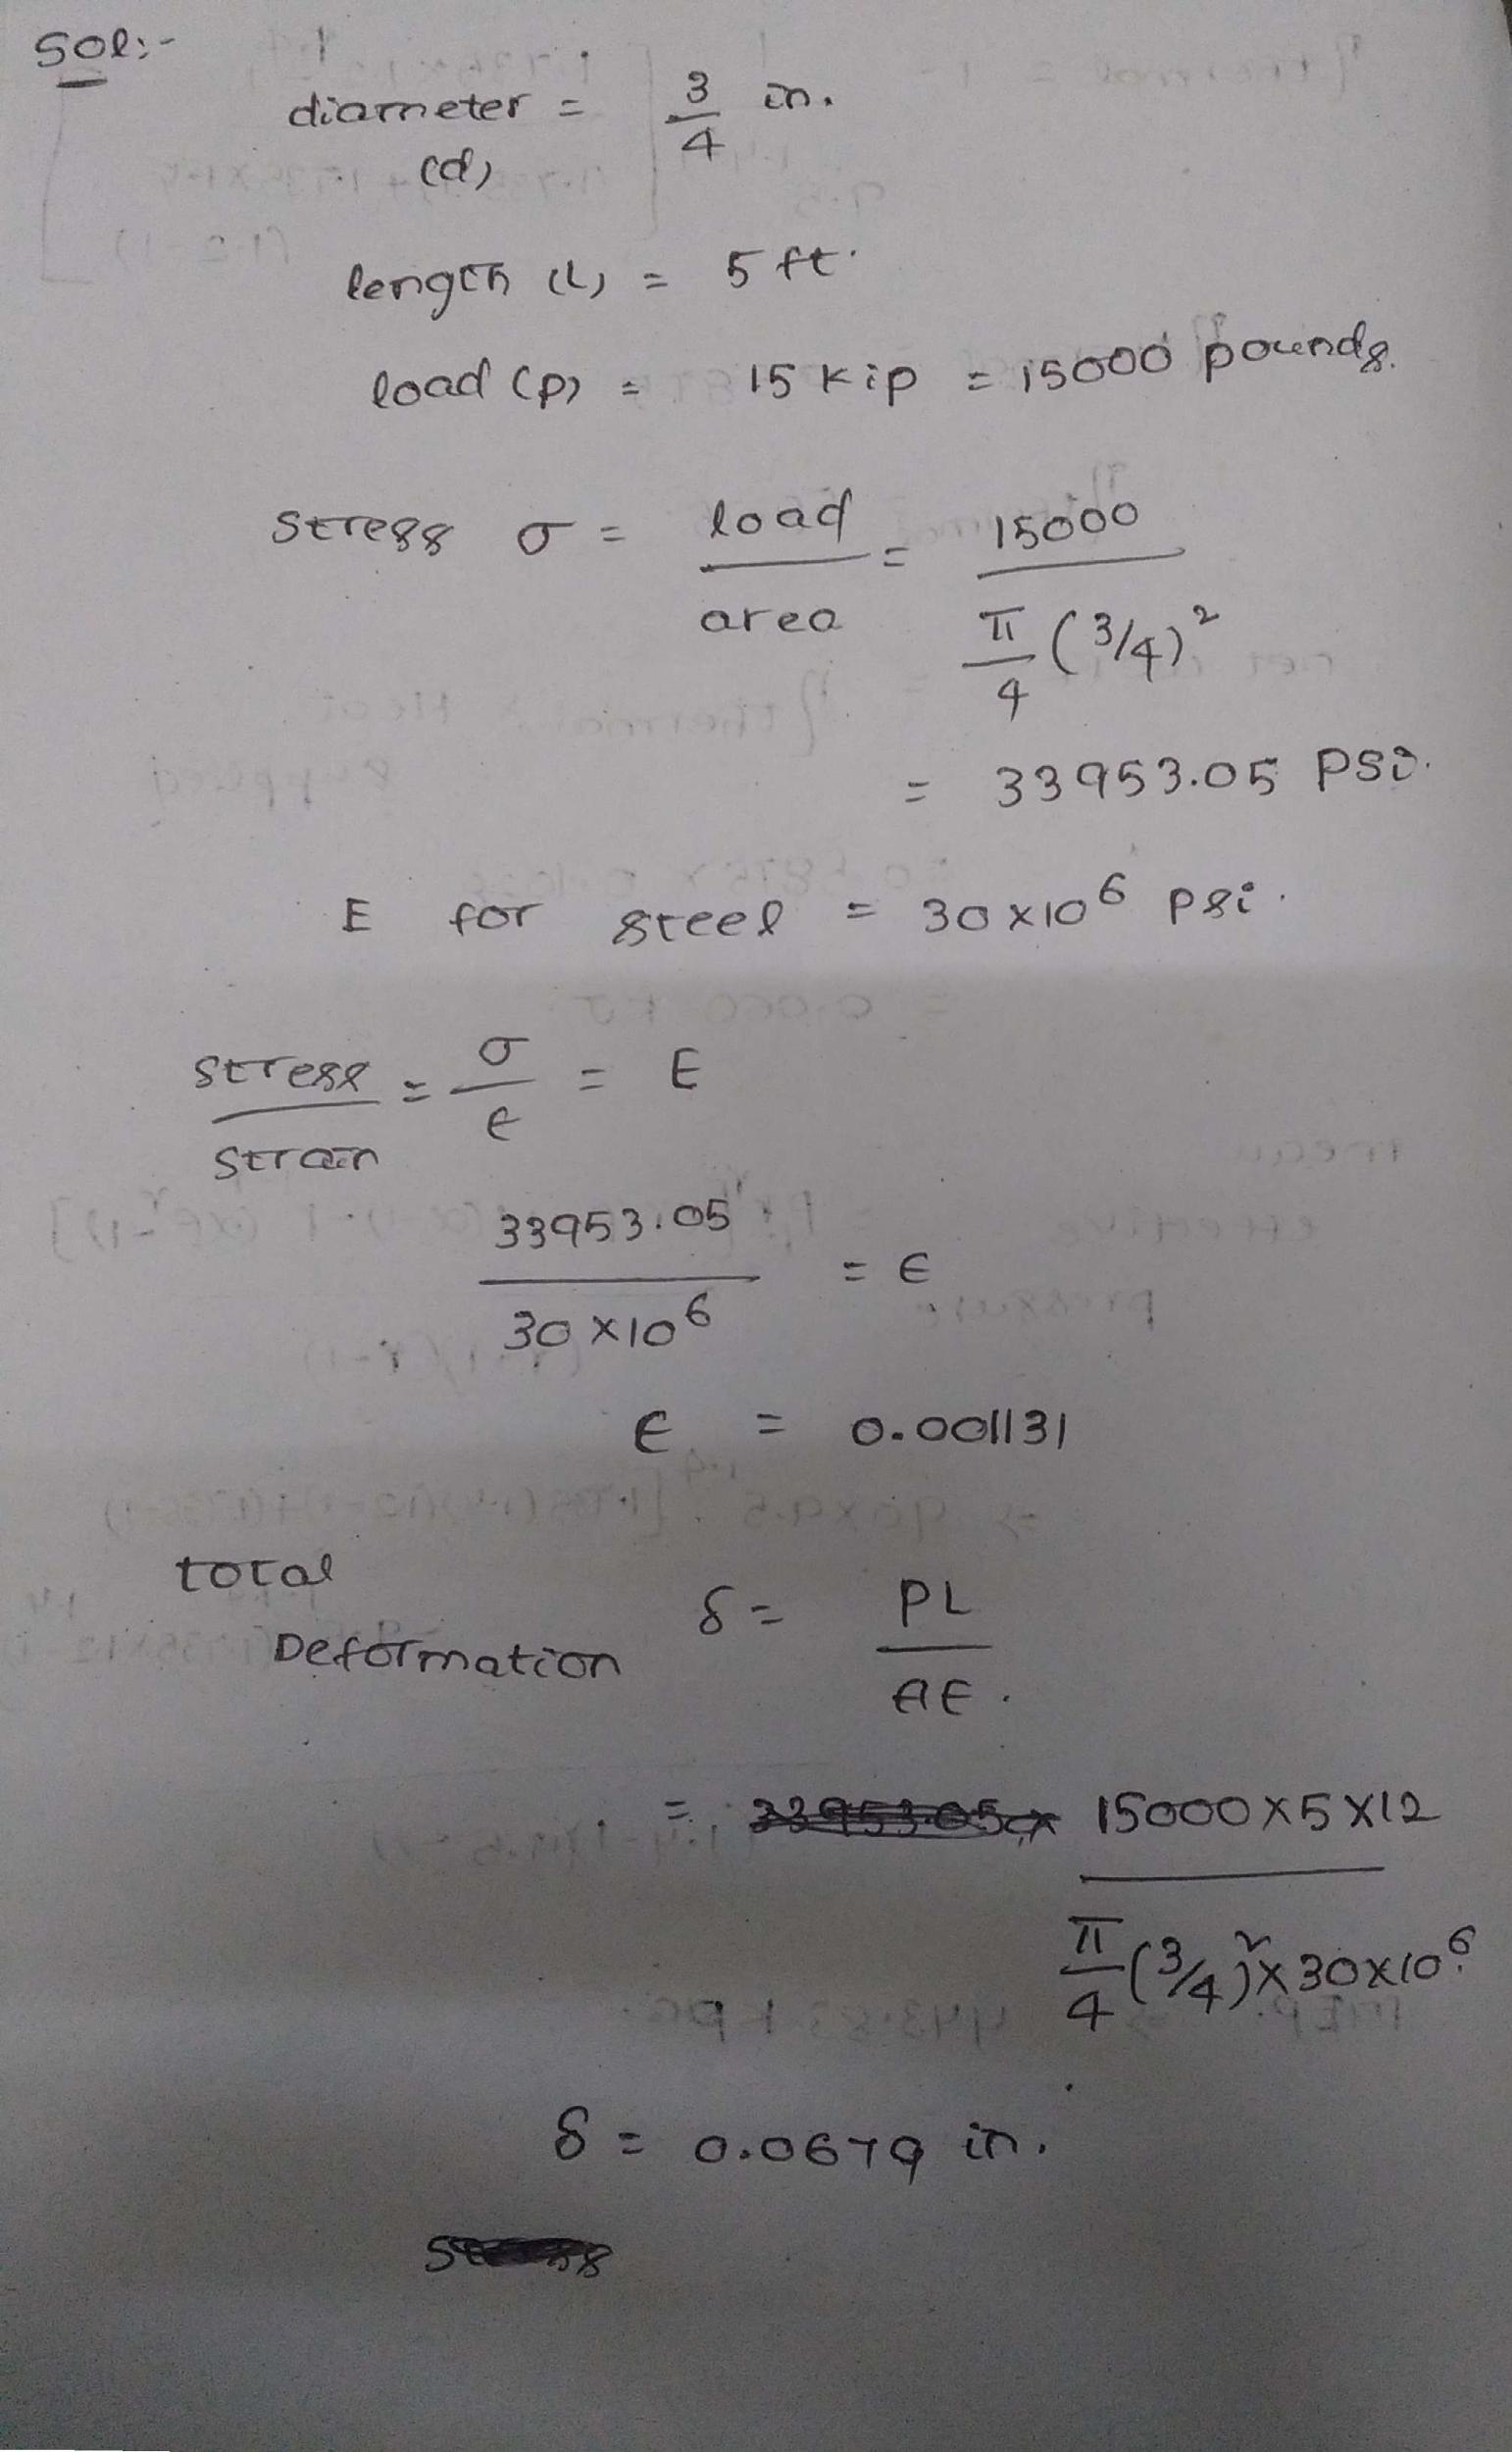 Sol:-
diameter = 3/4 in.
(d)
length (L) = 5 ft.
load (P) = 15 kip = 15000 pounds.
Stress σ = load/area = 15000 / π/4 (3/4)²
= 33953.05 psi.
E for steel = 30×10⁶ psi.
Stress/Strain = σ/ϵ = E
33953.05 / 30×10⁶ = ϵ
ϵ = 0.001131
total
Deformation δ = PL/AE.
= 15000×5×12 / π/4 (3/4)²×30×10⁶.
δ = 0.0679 in.